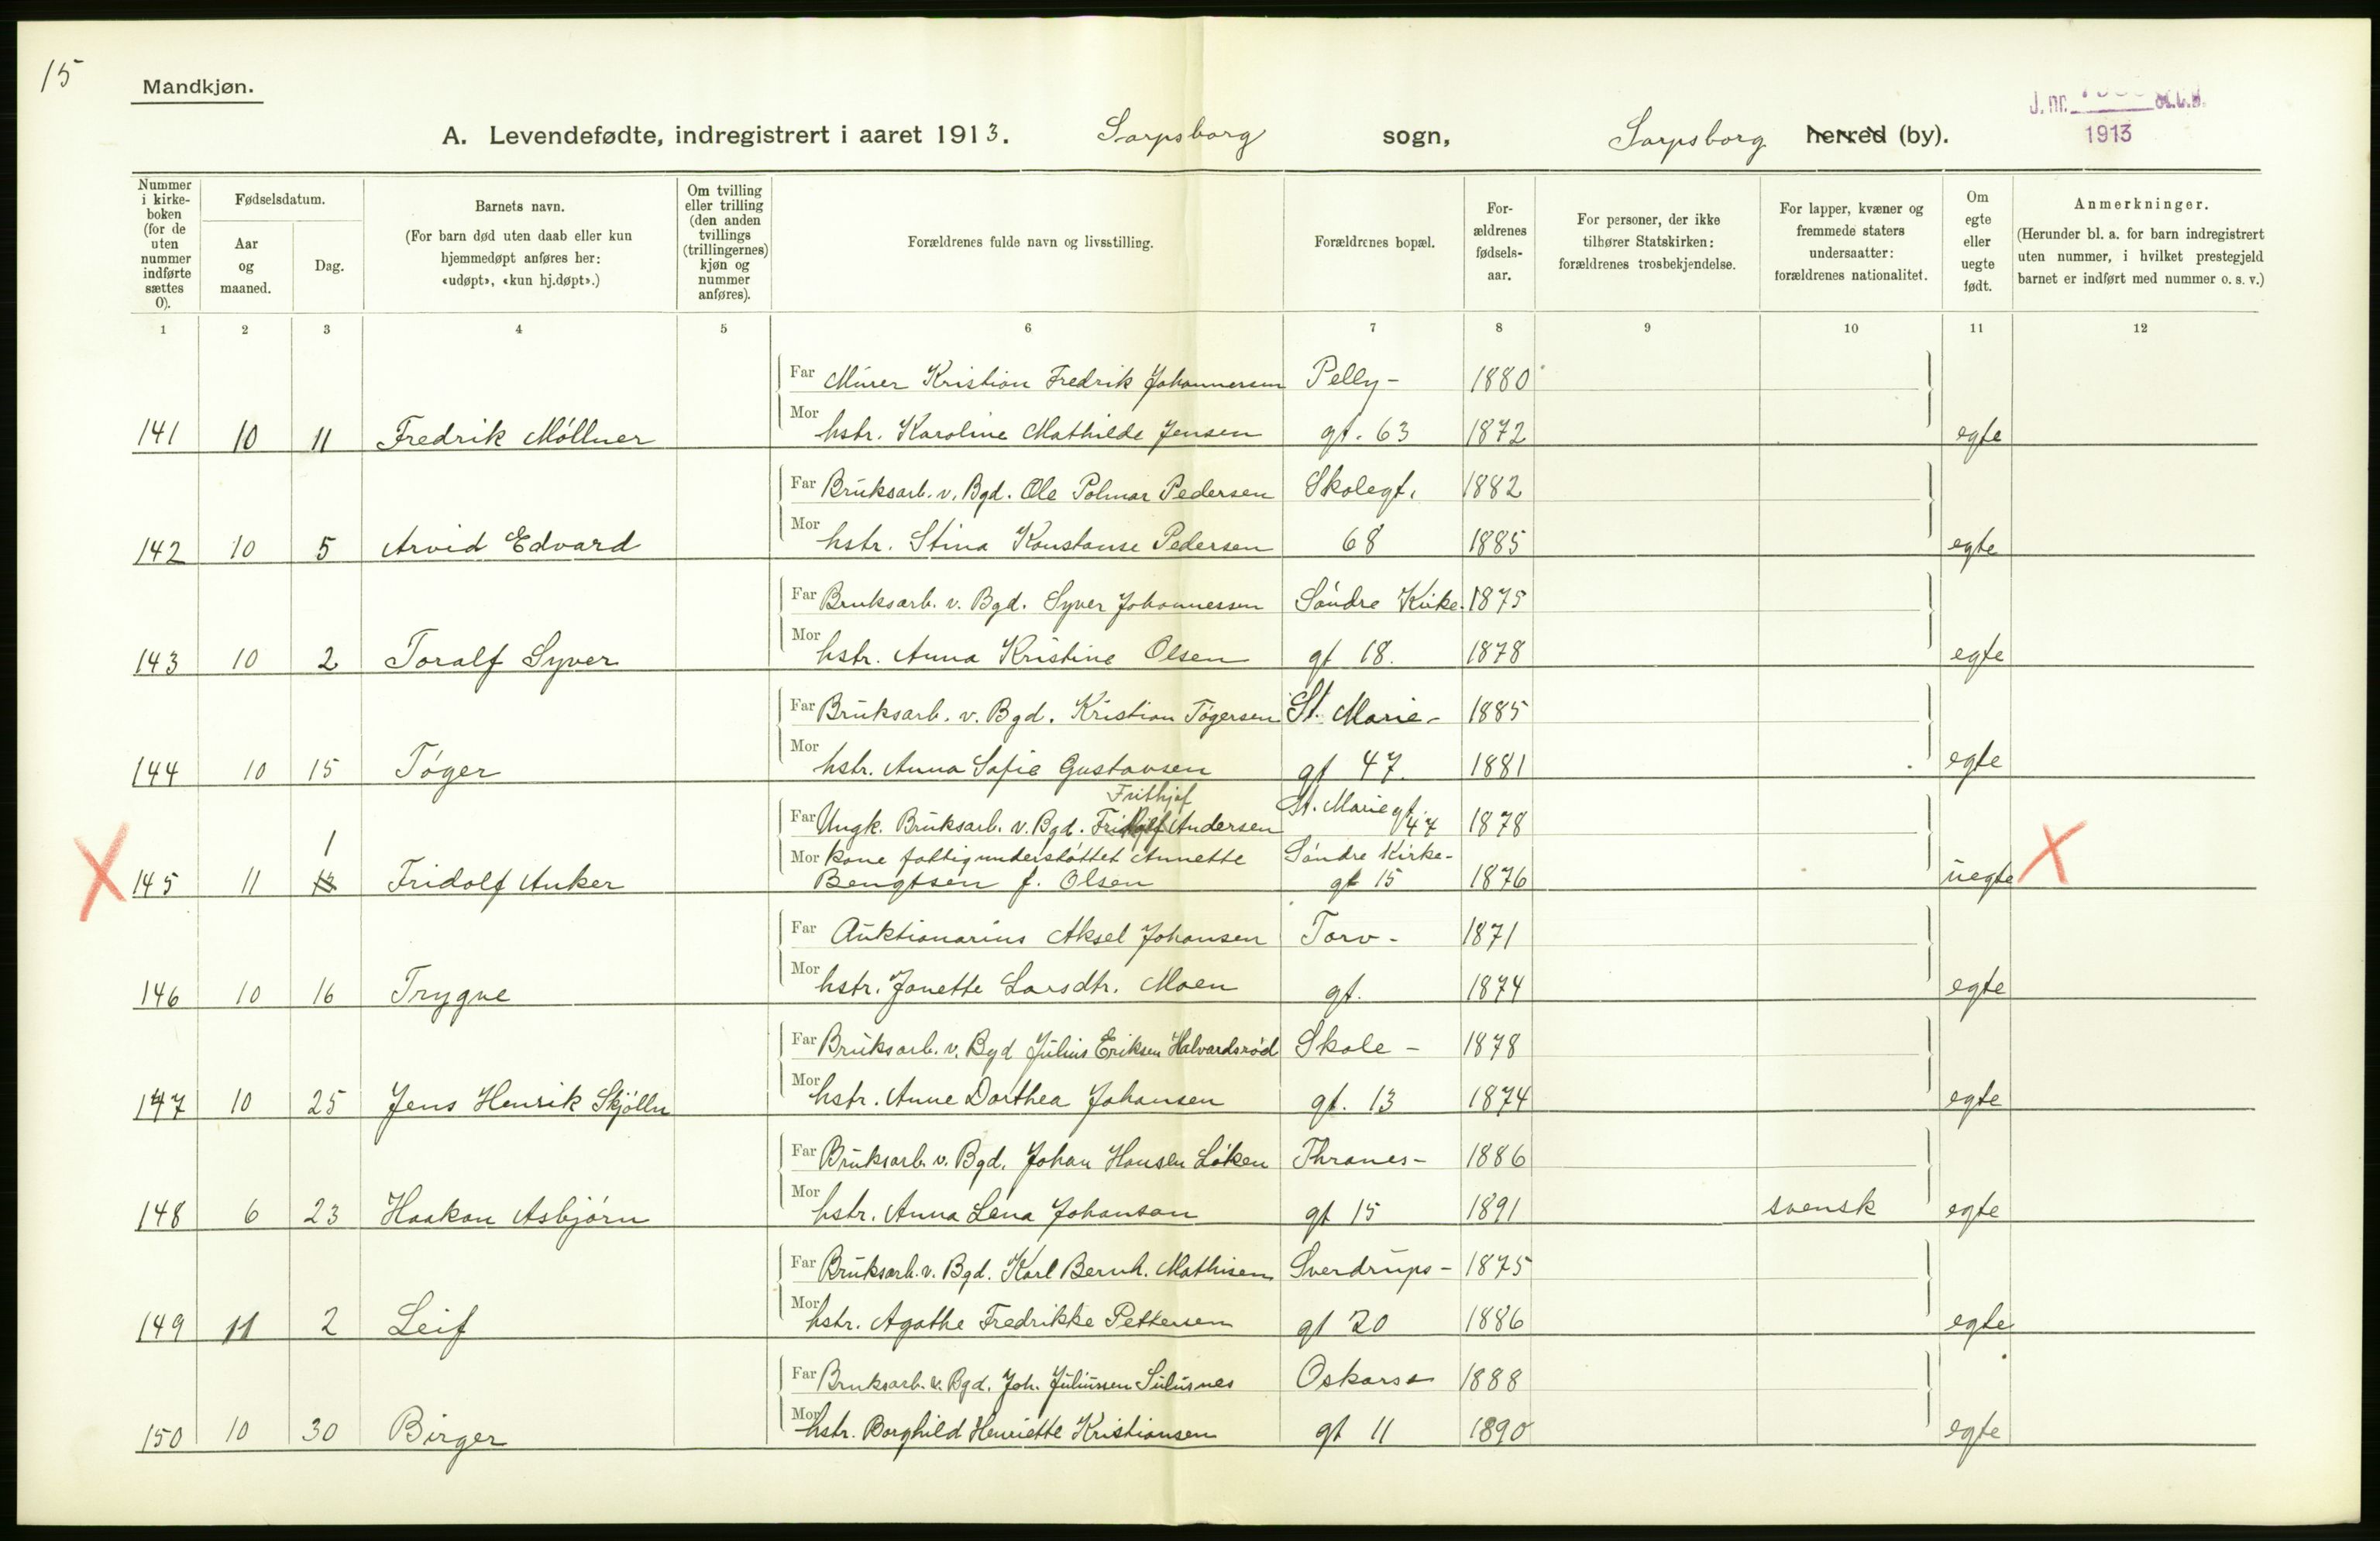 15
Mandkjøn.
J. nr. St.C.B.
1913
A. Levendefødte, indregistrert i aaret 1913. Sarpsborg sogn, Sarpsborg herred (by).
Nummer i kirke-boken (for de uten nummer indførte sættes 0).
Fødselsdatum.
Aar og maaned.
Dag.
Barnets navn.
(For barn død uten daab eller kun hjemmedøpt anføres her: «udøpt», «kun hj.døpt».)
Om tvilling eller trilling (den anden tvillings (trillingernes) kjøn og nummer anføres).
Forældrenes fulde navn og livsstilling.
Forældrenes bopæl.
For-ældrenes fødsels-aar.
For personer, der ikke tilhører Statskirken: forældrenes trosbekjendelse.
For lapper, kvæner og fremmede staters undersaatter: forældrenes nationalitet.
Om egte eller uegte født.
Anmerkninger.
(Herunder bl. a. for barn indregistrert uten nummer, i hvilket prestegjeld barnet er indført med nummer o. s. v.)
1 2 3 4 5 6 7 8 9 10 11 12
Far Murer Kristian Fredrik Johannersen Pelly- 1880
141 10 11 Fredrik Møllner Mor hstr. Karoline Mathilde Jensen gt. 63 1872 egte
Far Bruksarb. v. Bgd. Ole Polmar Pedersen Skolegt. 1882
142 10 5 Arvid Edvard Mor hstr. Stina Konstanse Pedersen 68 1885 egte
Far Bruksarb. v. Bgd. Syver Johannessen Søndre Kirke- 1875
143 10 2 Toralf Syver Mor hstr. Anna Kristine Olsen gt 18. 1878 egte
Far Bruksarb. v. Bgd. Kristian Tøgersen St. Marie- 1885
144 10 15 Tøger Mor hstr. Anna Sofie Gustavsen gt 47. 1881 egte
Frithjof
Far Ungk. Bruksarb. v. Bgd. Andersen St. Marie gt. 47 1878
1
Mor kone fattigunderstøttet Annette Søndre Kirke-
145 11 Fridolf Anker Bengtsen f. Olsen gt 15 1876 uegte
Far Auktionarius Aksel Johansen Torv- 1871
146 10 16 Trygve Mor hstr. Janette Larsdtr. Moen gt. 1874 egte
Far Bruksarb. v. Bgd Julius Eriksen Halvardsrød Skole- 1878
147 10 25 Jens Henrik Skjølln Mor hstr. Anne Dorthea Johansen gt. 13 1874 egte
Far Bruksarb. v. Bgd. Johan Hansen Løken Thranes- 1886
148 6 23 Haakon Asbjørn Mor hstr. Anna Lena Johanson gt 15 1891 svensk egte
Far Bruksarb. v. Bgd. Karl Bernh. Mathisen Sverdrups- 1875
149 11 2 Leif Mor hstr. Agathe Fredrikke Pettersen gt 20 1886 egte
Far Bruksarb. v. Bgd. Joh. Juliussen Sulusnes Oskars- 1888
150 10 30 Birger Mor hstr. Borghild Henriette Kristiansen gt 11 1890 egte